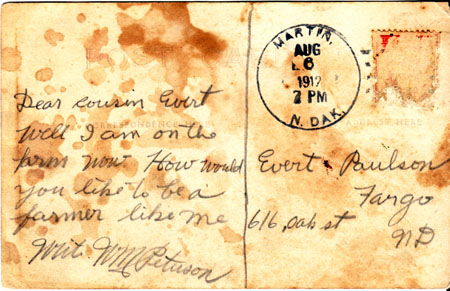 MARTIN,
AUG
6
1912
2 PM
N. DAK.
Dear cousin Evert
Well I am on the
farm now How would
you like to be a
farmer like me
Write Wm Peterson
CORRESPONDENCE HERE
Evert Paulson
Fargo
616, oak st
ND